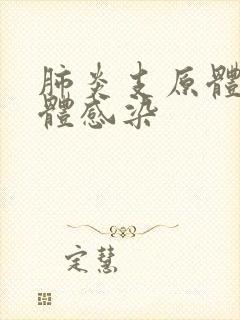 肺炎支原體
體感染
定慧